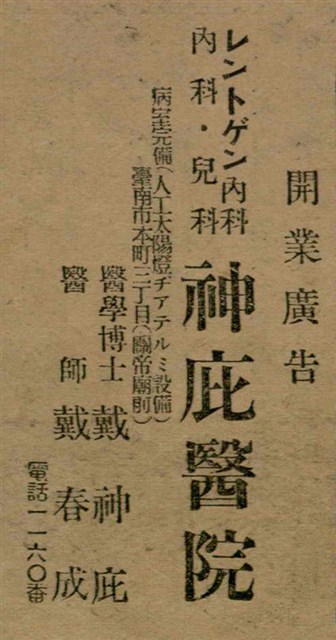 開業廣告
レントゲン內科
內科・兒科
神庇醫院
病室完備(人工太陽燈ヂアテルミ設備)
臺南市本町三丁目(關帝廟前)
醫學博士 戴神庇
醫師 戴春成
電話一一六〇番